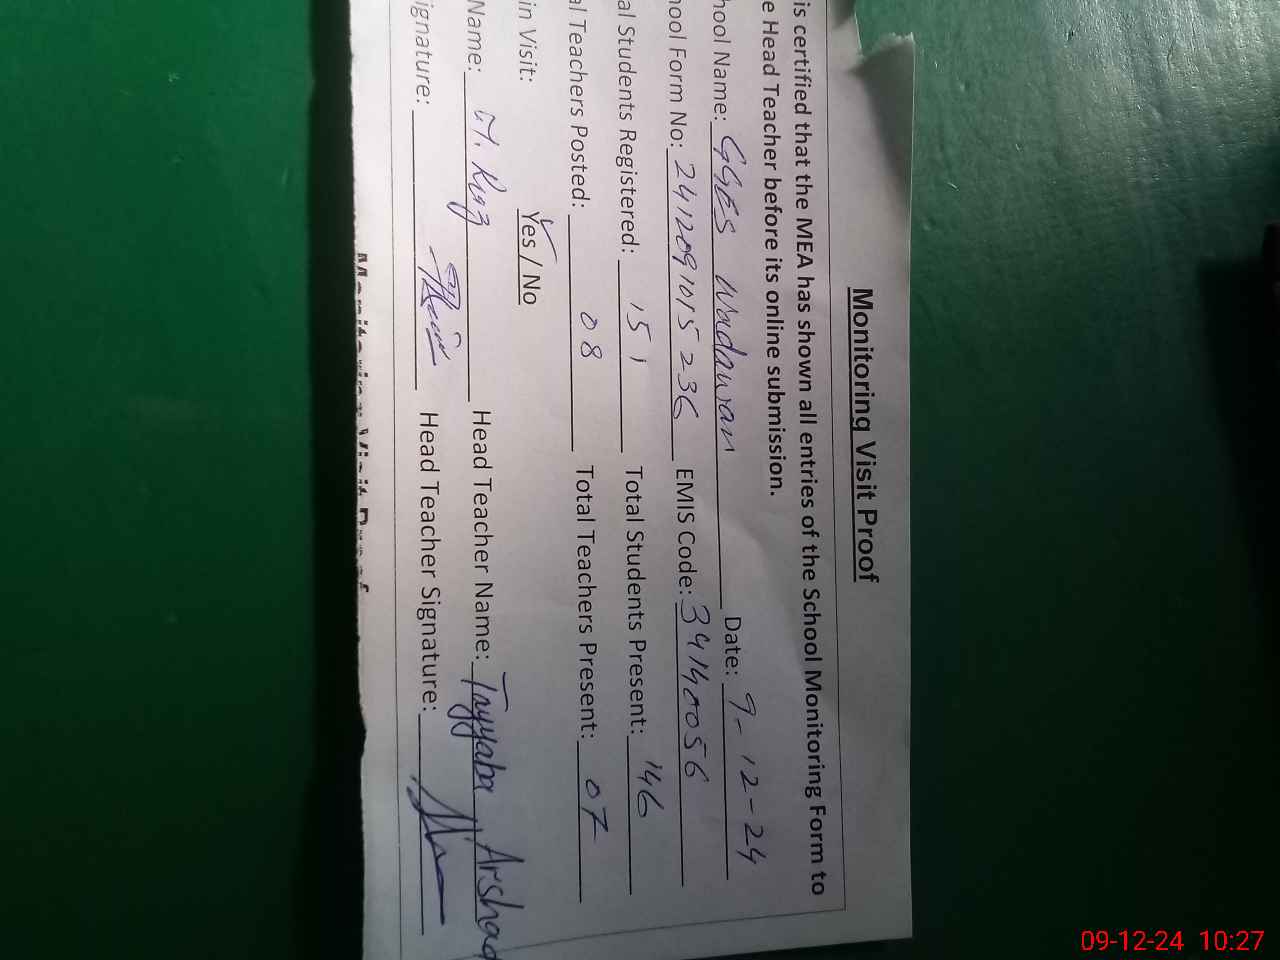 Monitoring Visit Proof
is certified that the MEA has shown all entries of the School Monitoring Form to
e Head Teacher before its online submission.
hool Name: GGES Wadawan Date: 9-12-24
hool Form No: 2412091015236 EMIS Code: 34140056
al Students Registered: 151 Total Students Present: 146
al Teachers Posted: 08 Total Teachers Present: 07
in Visit: Yes / No
Name: M. Riaz Head Teacher Name: Tayyaba Arshad
ignature: Head Teacher Signature:
Monitoring Visit Proof
09-12-24 10:27